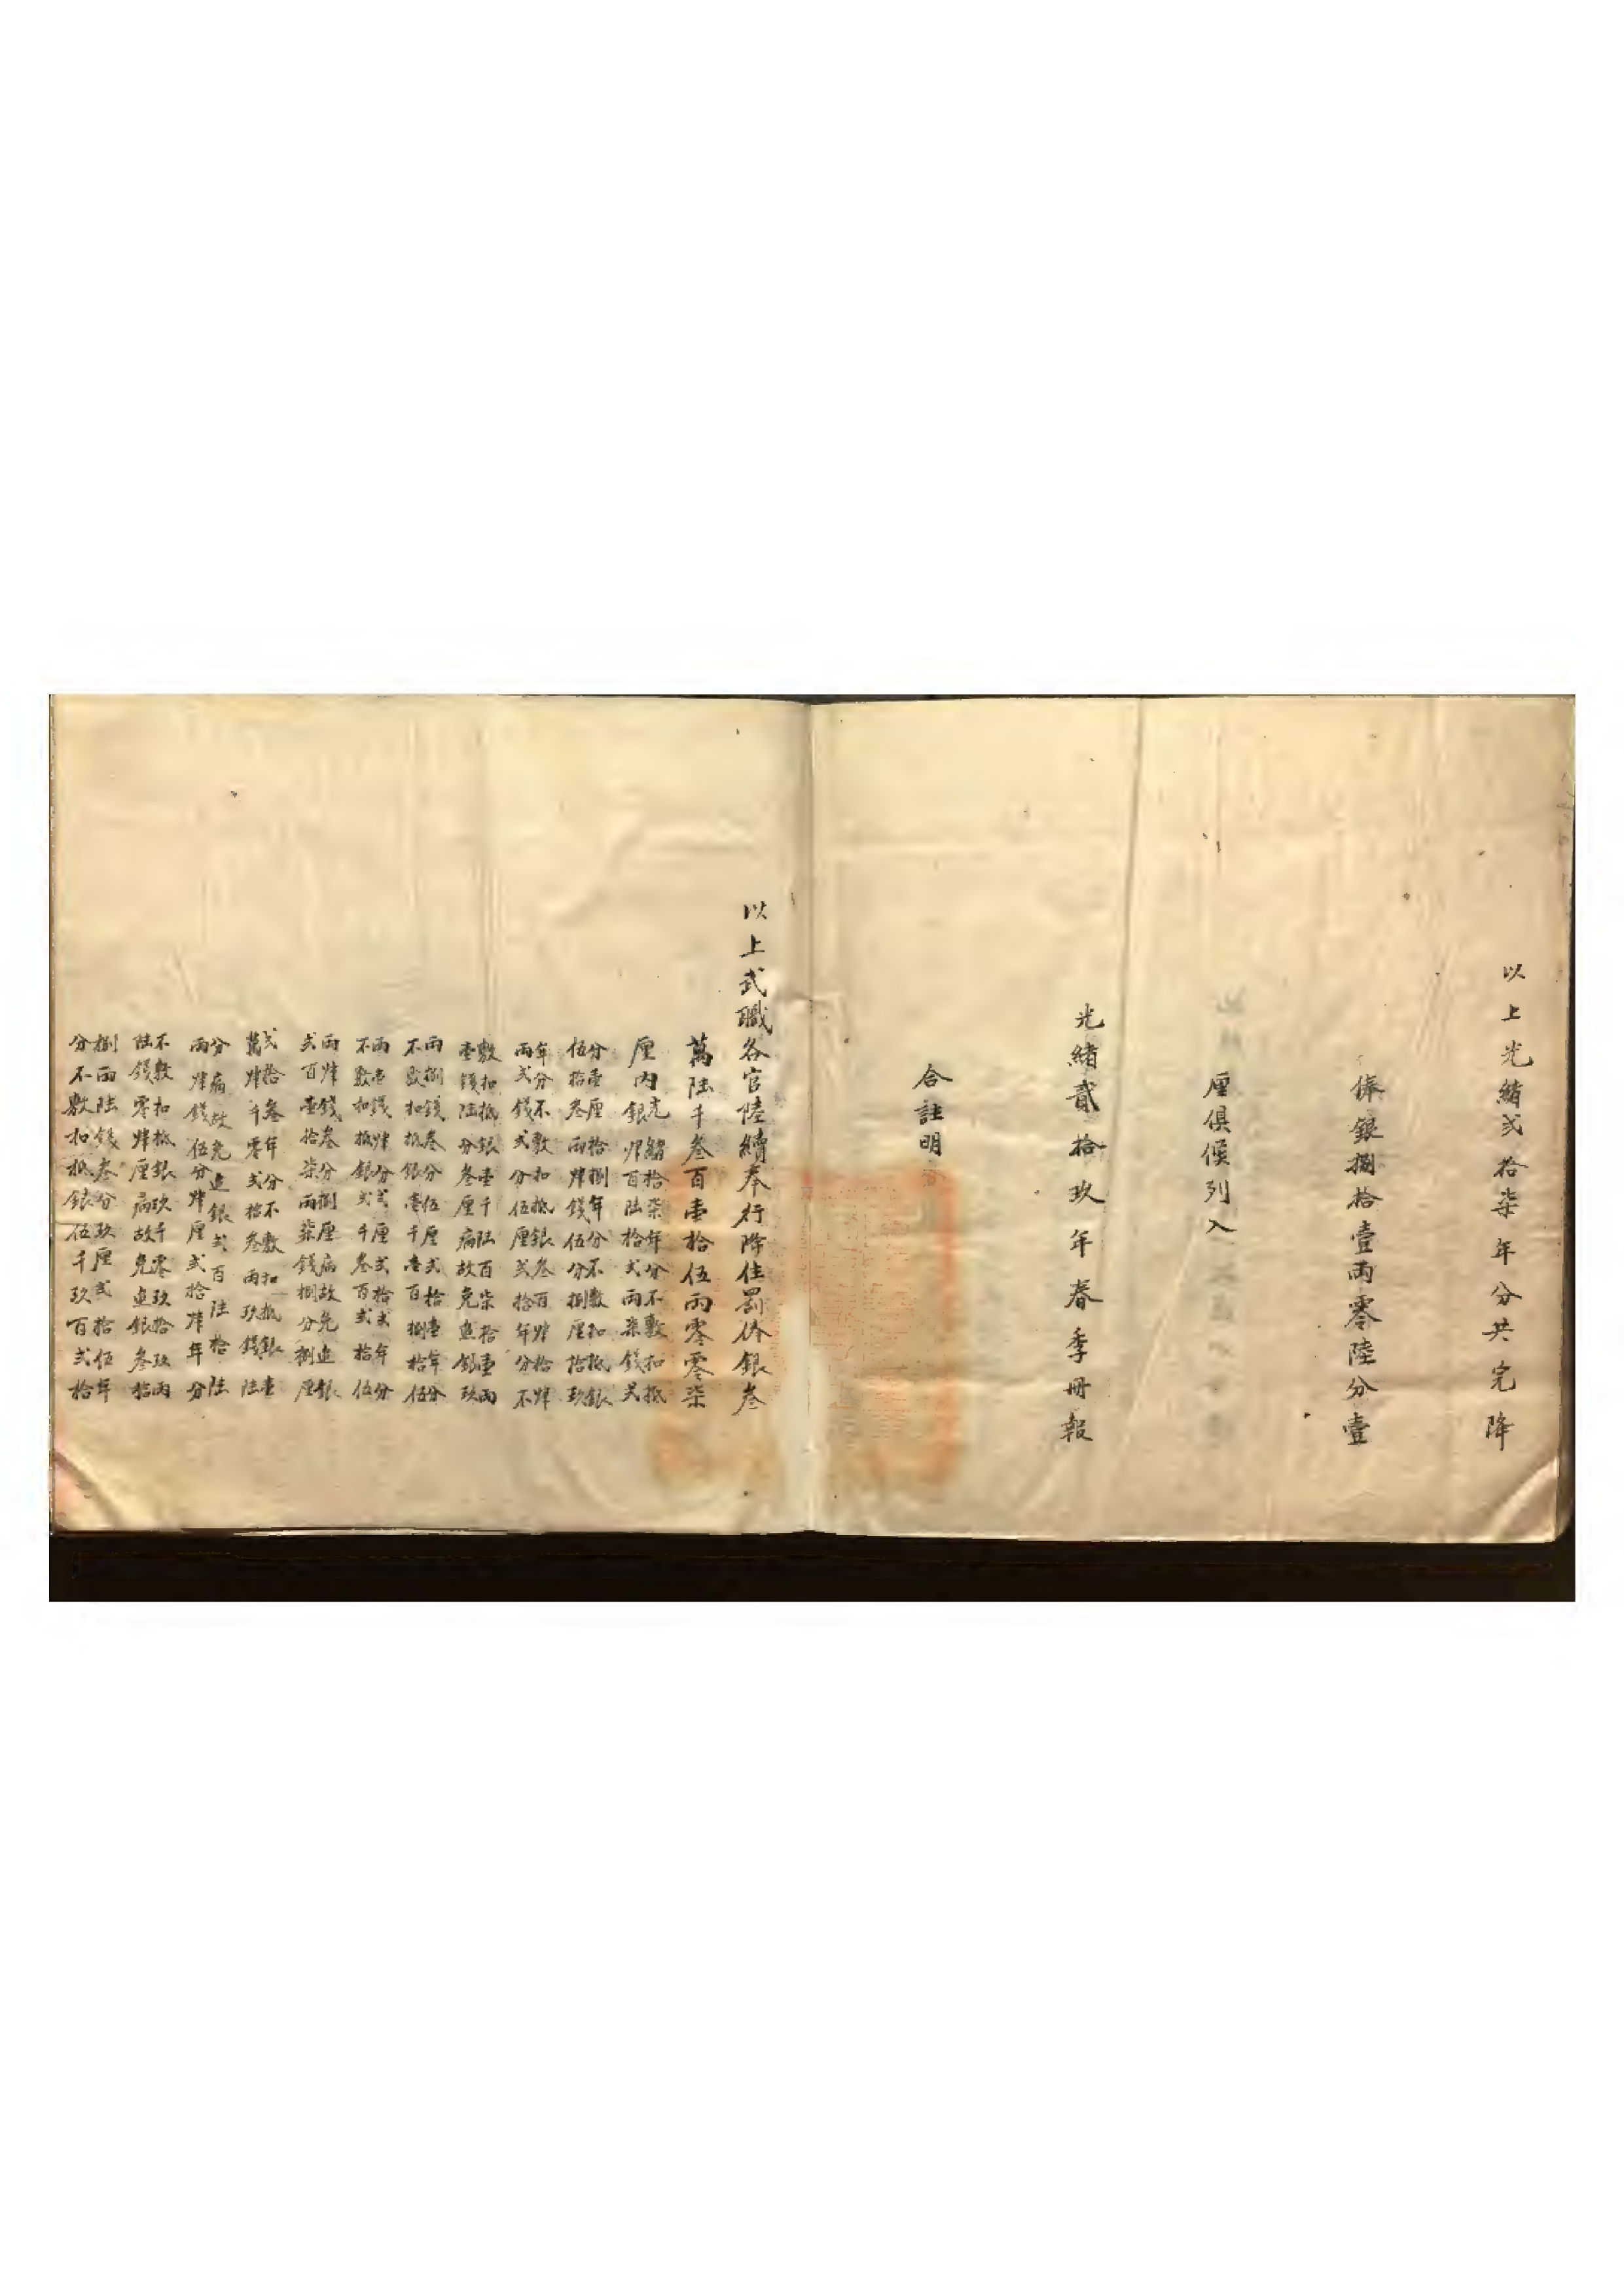 以上光緒弍拾柒年分共完降
俸銀捌拾壹兩零陸分壹
厘俱候列入
光緒貳拾玖年春季冊報
合註明
以上武職各官陸續奉行降住罰俸銀叁
萬陸千叁百壹拾伍兩零零柒
厘內光緒拾柒年分不敷扣抵
銀肆百陸拾弍兩柒錢弍
分壹厘拾捌年分不敷扣抵銀
伍拾叁兩肆錢伍分捌厘拾玖
年分不敷扣抵銀叁百肆拾肆
兩弍錢弍分伍厘弍拾年分不
敷扣抵銀壹千陸百柒拾壹兩
壹錢陸分叁厘病故免追銀玖
兩捌錢叁分伍厘弍拾壹年分
不敷扣抵銀壹千壹百捌拾伍
兩壹錢肆分弍厘弍拾弍年分
不敷扣抵銀弍千叁百弍拾伍
兩肆錢叁分捌厘病故免追銀
弍百壹拾柒兩柒錢捌分捌厘
弍拾叁年分不敷扣抵銀壹
萬肆千零弍拾叁兩玖錢陸
分病故免追銀弍百陸拾陸
兩肆錢伍分肆厘弍拾肆年分
不敷扣抵銀玖千零玖拾玖兩
陸錢零肆厘病故免追銀叁拾
捌兩陸錢叁分玖厘弍拾伍年
分不敷扣抵銀伍千玖百弍拾